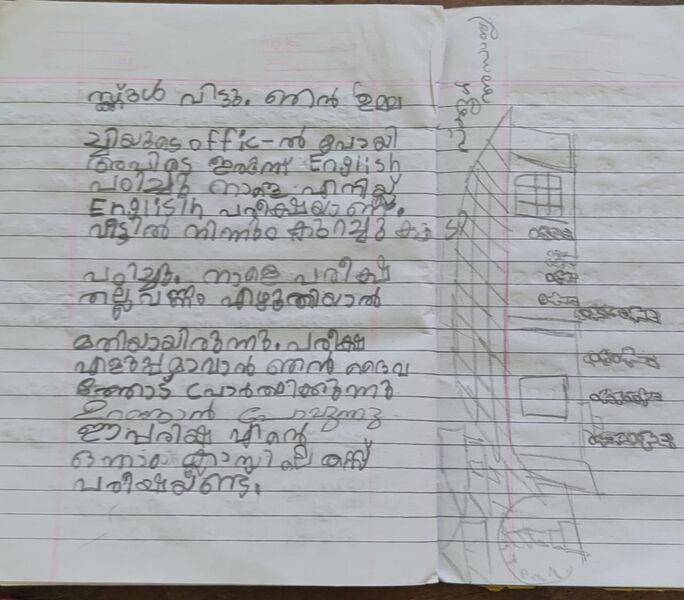 സ്കൂൾ വിട്ടു. ഞാൻ ഉമ്മ
ച്ചിയുടെ offic-ൽ പോയി
അവിടെ ഇരുന്ന് English
പഠിച്ചു നാളെ എനിക്ക്
English പരീക്ഷയാണ്.
വീട്ടിൽ നിന്നും കുറച്ചു കൂടി
പഠിച്ചു. നാളെ പരീക്ഷ
നല്ലവണ്ണം എഴുതിയാൽ
മതിയായിരുന്നു. പരീക്ഷ
എളുപ്പമാവാൻ ഞാൻ ദൈവ
ത്തോട് പ്രാർത്ഥിക്കുന്നു
ഉറങ്ങാൻ പോവുന്നു
ഈ പരീക്ഷ എന്റെ
ഒന്നാം ക്ലാസ്സിലെ
പരീക്ഷയാണ്.